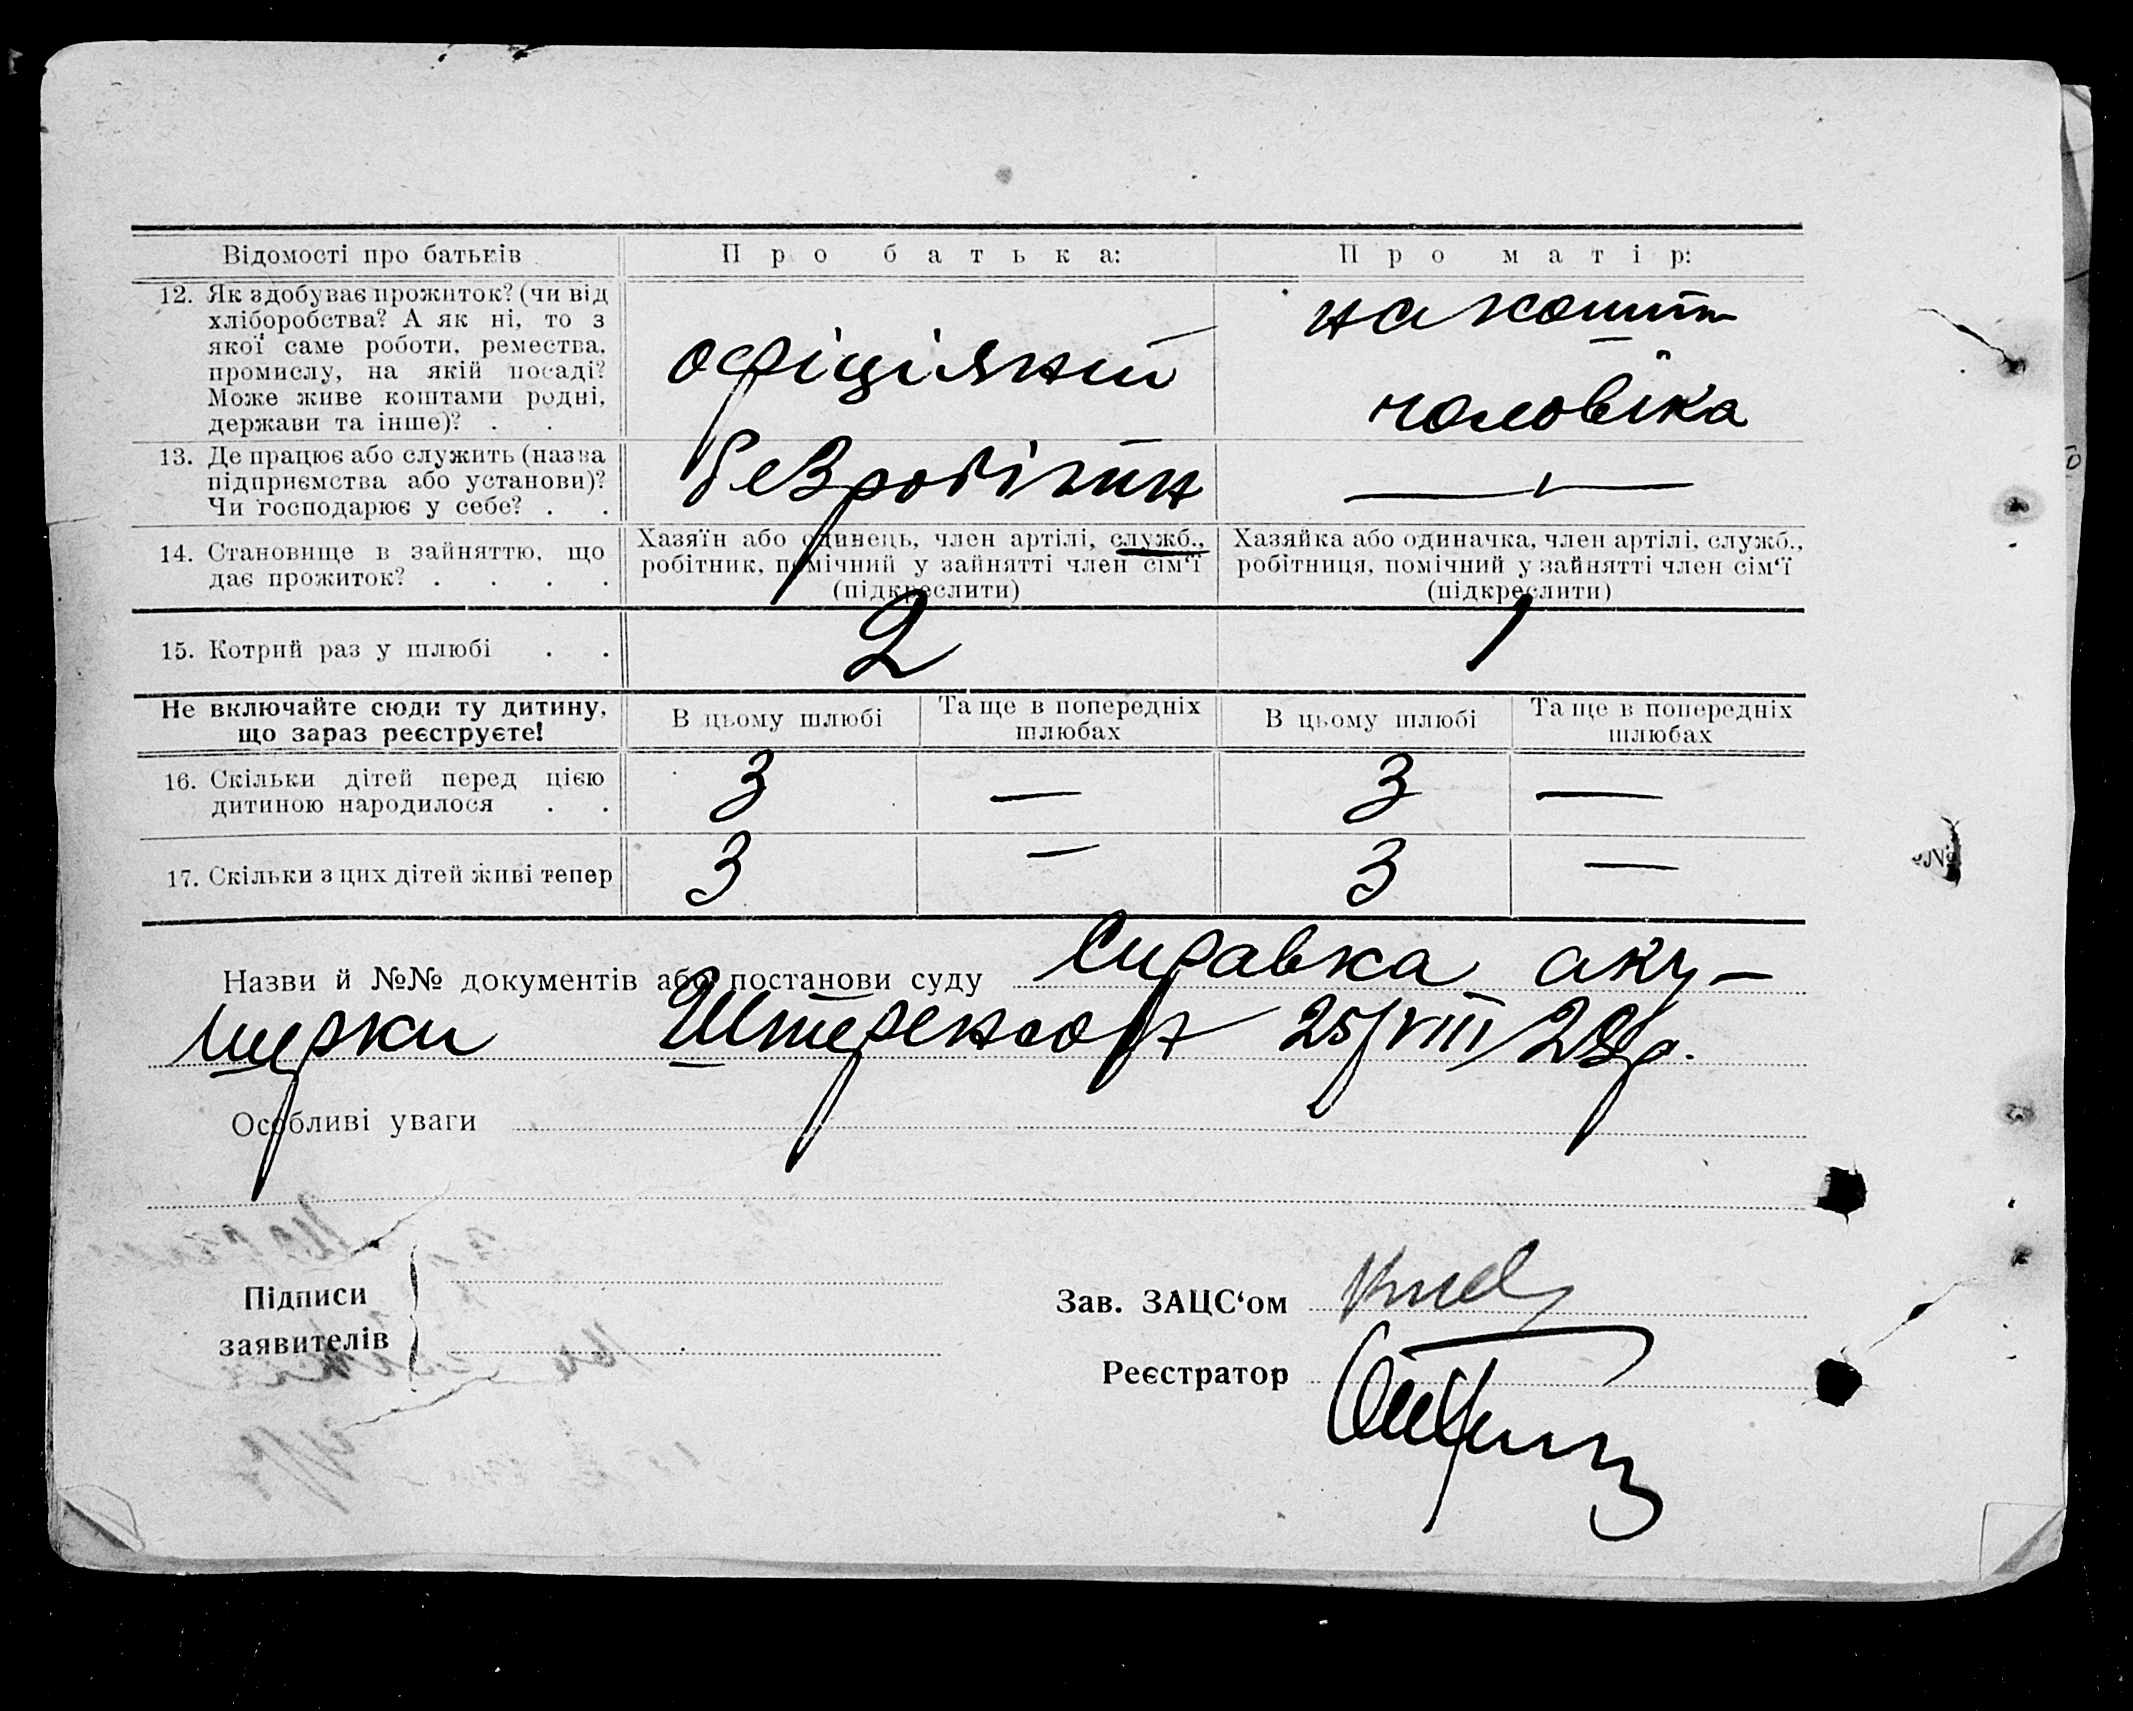 Відомості про батьків
П р о б а т ь к а:
П р о м а т і р:
12. Як здобуває прожиток? (чи від
хліборобства? А як ні, то з
якої саме роботи, ремества,
промислу, на якій посаді?
Може живе коштами родні,
держави та інше)? . .
офіціяний
на кошти
чоловіка
13. Де працює або служить (назва
підприємства або установи)?
Чи господарює у себе? . .
безробітн
—
14. Становище в зайняттю, що
дає прожиток? . . . .
Хазяїн або одинець, член артілі, служб.,
робітник, помічний у зайнятті член сім‘ї
(підкреслити)
Хазяйка або одиначка, член артілі, служб.,
робітниця, помічний у зайнятті член сім‘ї
(підкреслити)
15. Котрий раз у шлюбі . .
2
1
Не включайте сюди ту дитину,
що зараз реєструєте!
В цьому шлюбі
Та ще в попередніх
шлюбах
В цьому шлюбі
Та ще в попередніх
шлюбах
16. Скільки дітей перед цією
дитиною народилося . .
3 — 3 —
17. Скільки з цих дітей живі тепер
3 — 3 —
Назви й №№ документів або постанови суду Справка аку-
шерки 25/VIII/28р.
Особливі уваги
Підписи
заявителів
Зав. ЗАЦС‘ом
Реєстратор